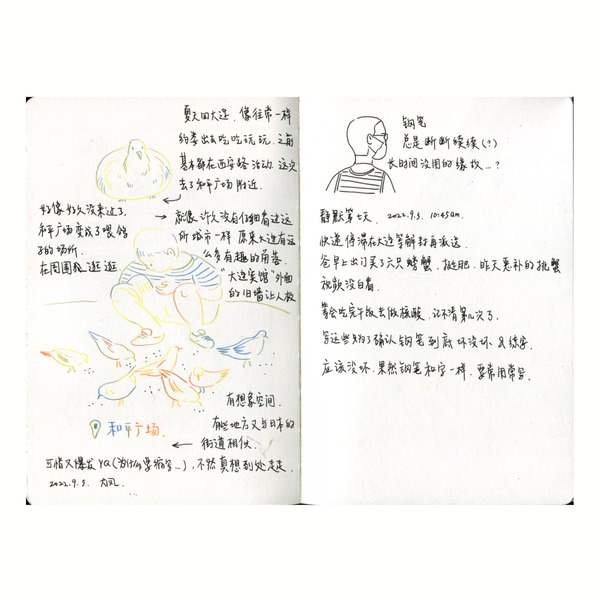 夏天回大连，像往常一样
约类出去吃吃玩玩，之前
基本都在西安路活动，这次
去了和平广场附近。
好像好久没来过了，
和平广场变成了喂鸽
子的场所。
在周围逛逛
就像许久没有仔细看过这
所城市一样 原来大连有这
么多有趣的角落
“大连宾馆”外面
的旧墙让人极
有想象空间。
有些地方又与日本的
街道相似。
和平广场.
可惜又爆发YQ(为什么要缩写…)，不然真想到处走走。
2022.9.5. 大风.
钢笔
总是断断续续(?)
长时间没用的缘故…?
静默第七天. 2022.9.5. 10:45am.
快递停滞在大连等解封再派送.
爸早上出门买了六只螃蟹，挺肥，昨天恶补的挑蟹
视频没白看.
等会吃完午饭去做核酸，记不清第几次了.
写这些为了确认钢笔到底坏没坏&练字.
应该没坏.果然钢笔和字一样，要常用常写.